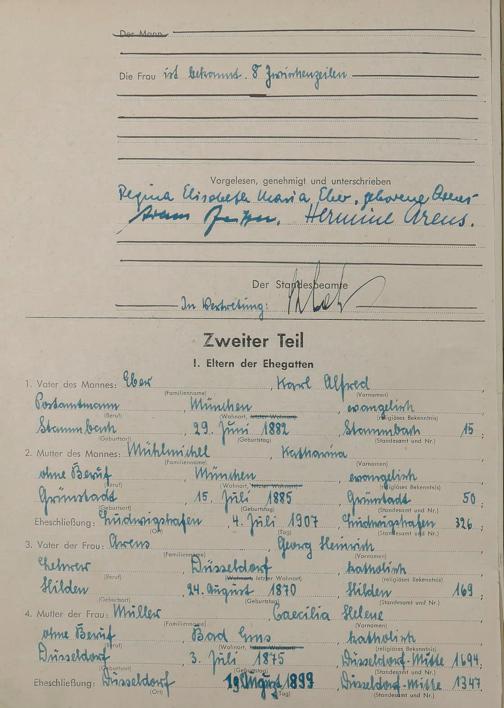 Der Mann
Die Frau ist bekannt. 8 Zwischenzeilen
Vorgelesen, genehmigt und unterschrieben
Regina Elisabeth Maria Eber, geborene Arens
Hermine Arens.
Der Standesbeamte
In Vertretung:
Zweiter Teil
I. Eltern der Ehegatten
1. Vater des Mannes: Eber, Karl Alfred
(Familienname) (Vornamen)
Postamtmann, München, evangelisch
(Beruf) (Wohnort, letzter Wohnort) (religiöses Bekenntnis)
Stammbach, 29. Juni 1882 Stammbach 15;
(Geburtsort) (Geburtstag) (Standesamt und Nr.)
2. Mutter des Mannes: Mühlmichel, Katharina
(Familienname) (Vornamen)
ohne Beruf, München, evangelisch
(Beruf) (Wohnort, letzter Wohnort) (religiöses Bekenntnis)
Grünstadt, 15. Juli 1885 Grünstadt 50;
(Geburtsort) (Geburtstag) (Standesamt und Nr.)
Eheschließung: Ludwigshafen, 4. Juli 1907 Ludwigshafen 326;
(Ort) (Tag) (Standesamt und Nr.)
3. Vater der Frau: Arens, Georg Heinrich
(Familienname) (Vornamen)
Lehrer, Düsseldorf, katholisch
(Beruf) (Wohnort, letzter Wohnort) (religiöses Bekenntnis)
Hilden, 24. August 1870 Hilden 169;
(Geburtsort) (Geburtstag) (Standesamt und Nr.)
4. Mutter der Frau: Müller, Caecilia Helene
(Familienname) (Vornamen)
ohne Beruf, Bad Ems, katholisch
(Beruf) (Wohnort, letzter Wohnort) (religiöses Bekenntnis)
Düsseldorf, 3. Juli 1875 Düsseldorf-Mitte 1694,
(Geburtsort) (Geburtstag) (Standesamt und Nr.)
Eheschließung: Düsseldorf, 19. August 1899 Düsseldorf-Mitte 1347
(Ort) (Tag) (Standesamt und Nr.)